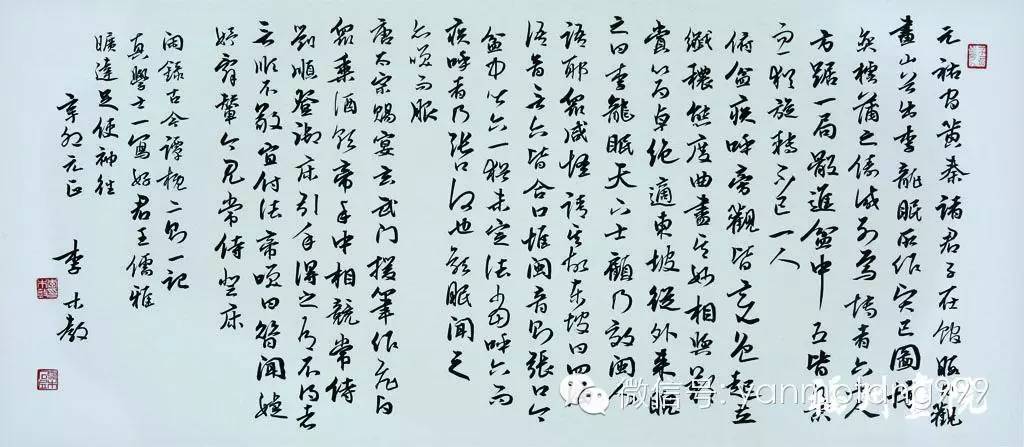 元祐間黃秦諸君子在館暇觀
畫山谷出李龍眠所作賢已圖博
奕樗蒲之儔咸列焉博者六七人
方踞一局骰迸盆中五皆玈
而一猶旋轉不已一人
俯盆疾呼旁觀皆變色起立
纖穠態度曲盡其妙相與歎
賞以為卓絕適東坡從外來睨
之曰李龍眠天下士顧乃效閩人
語耶眾咸怪請其故東坡曰四海
語音言六皆合口惟閩音則張口今
盆中皆六一猶未定法當呼六而
疾呼者乃張口何也龍眠聞之
亦而服
唐太宗賜宴玄武門援筆作飛白
眾乘酒就帝手中相競常侍
劉順登御床引手得之不得者
言順不敬宜付法帝曰昔聞婕
妤辭輦今見常侍登床
閒錄古今譚概二則一記
真學士一寫好君王儒雅
曠達足使神往
辛卯元正 李木教
微信号: yanmotang999